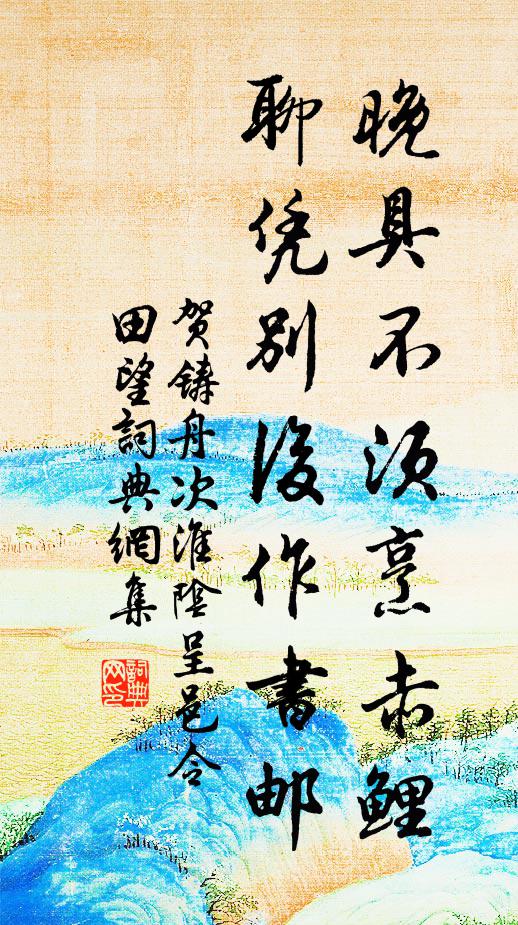 晚具不须烹赤鲤
聊凭别后作书邮
贺铸舟次淮陰呈邑令
田望詞典網集
詞典網印